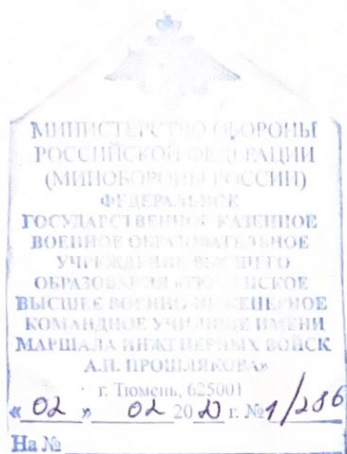 МИНИСТЕРСТВО ОБОРОНЫ
РОССИЙСКОЙ ФЕДЕРАЦИИ
(МИНОБОРОНЫ РОССИИ)
ФЕДЕРАЛЬНОЕ
ГОСУДАРСТВЕННОЕ КАЗЕННОЕ
ВОЕННОЕ ОБРАЗОВАТЕЛЬНОЕ
УЧРЕЖДЕНИЕ ВЫСШЕГО
ОБРАЗОВАНИЯ «ТЮМЕНСКОЕ
ВЫСШЕЕ ВОЕННО-ИНЖЕНЕРНОЕ
КОМАНДНОЕ УЧИЛИЩЕ ИМЕНИ
МАРШАЛА ИНЖЕНЕРНЫХ ВОЙСК
А.И. ПРОШЛЯКОВА»
г. Тюмень, 625001
« 02 » 02 20 20 г. № 1/286
На №